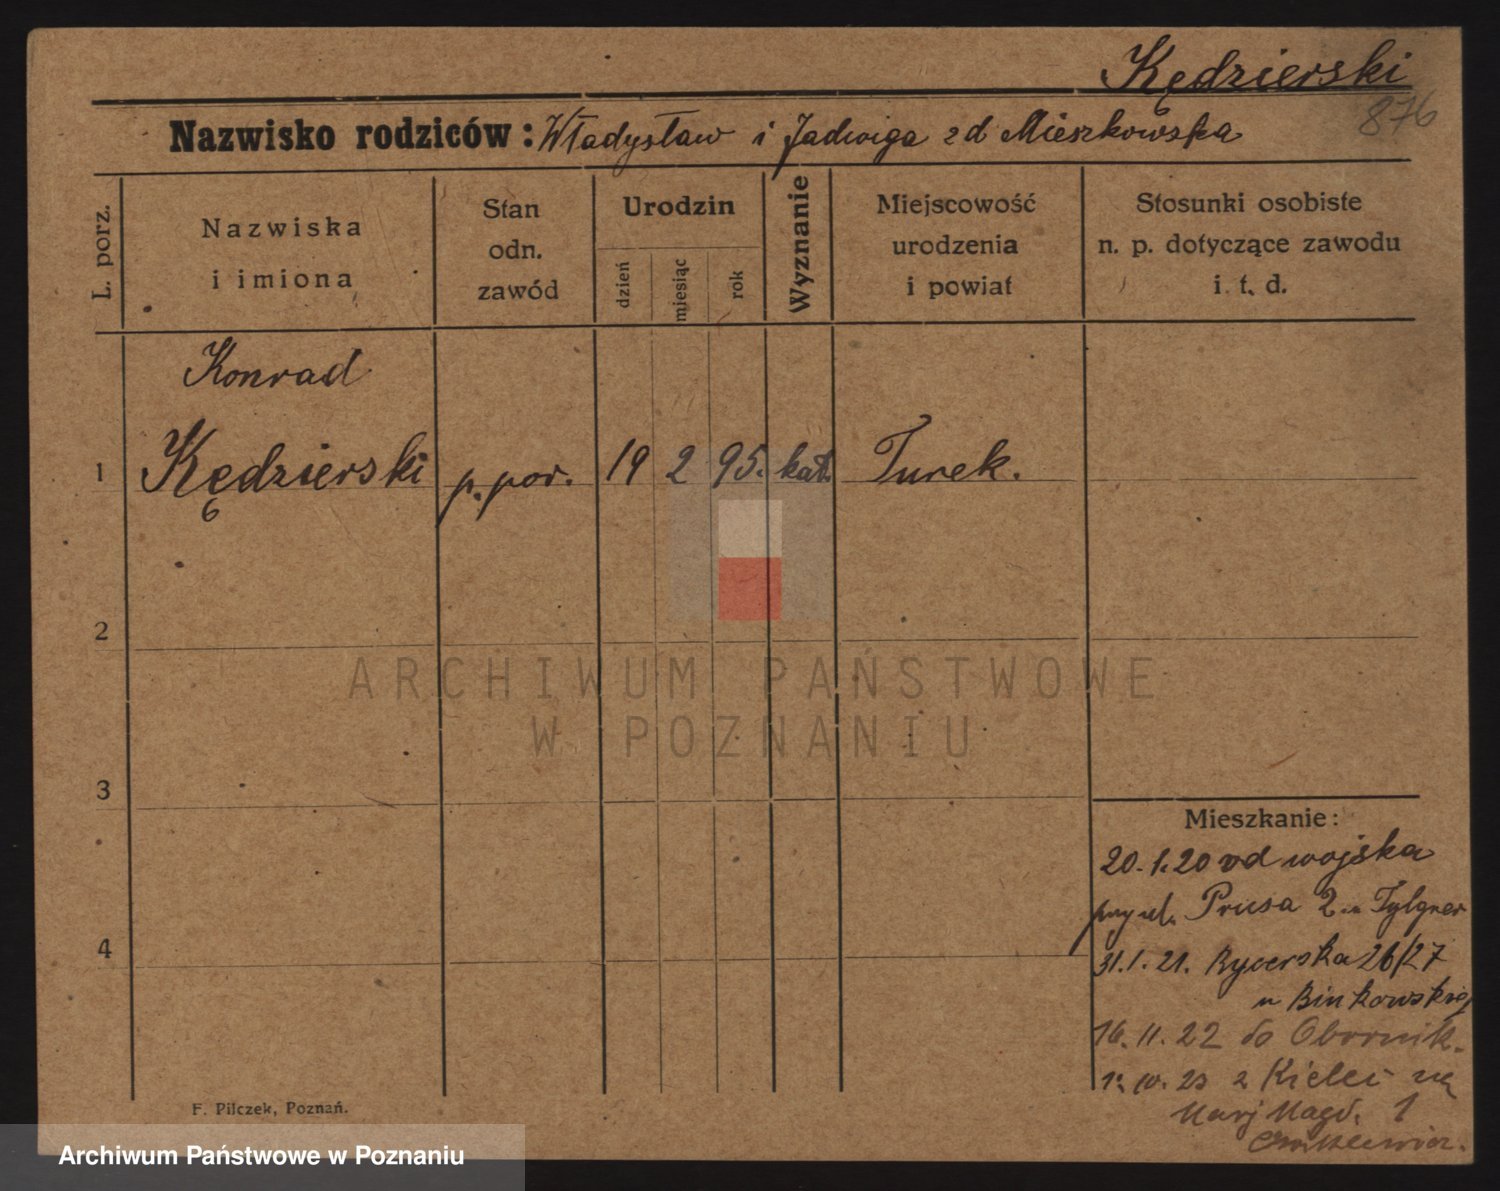 Kędzierski
876
Nazwisko rodziców: Władysław i Jadwiga zd Mieszkowska
L. porz.
Nazwiska
i imiona
Stan
odn.
zawód
Urodzin
dzień
miesiąc
rok
Wyznanie
Miejscowość
urodzenia
i powiat
Stosunki osobiste
n. p. dotyczące zawodu
i. t. d.
Konrad
1 Kędzierski p. por. 19 2 95. kat. Turek.
2
ARCHIWUM PAŃSTWOWE
W POZNANIU
3
Mieszkanie:
20.1.20 od wojska
przy ul. Prusa 2 u Tylgner
4
31.1.21. Rycerska 26/27
u Binkowskiej
16.11.22 do Obornik.
10. 23 z Kielc na
Marj Magd. 1
F. Pilczek, Poznań.
Archiwum Państwowe w Poznaniu